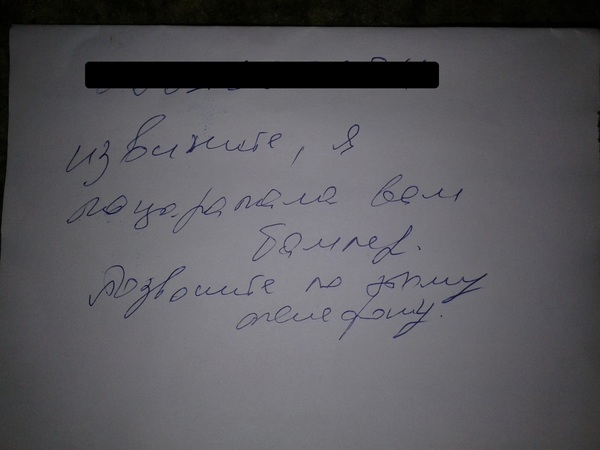 извините, я
поцарапала вам
бампер.
Позвоните по этому
телефону.